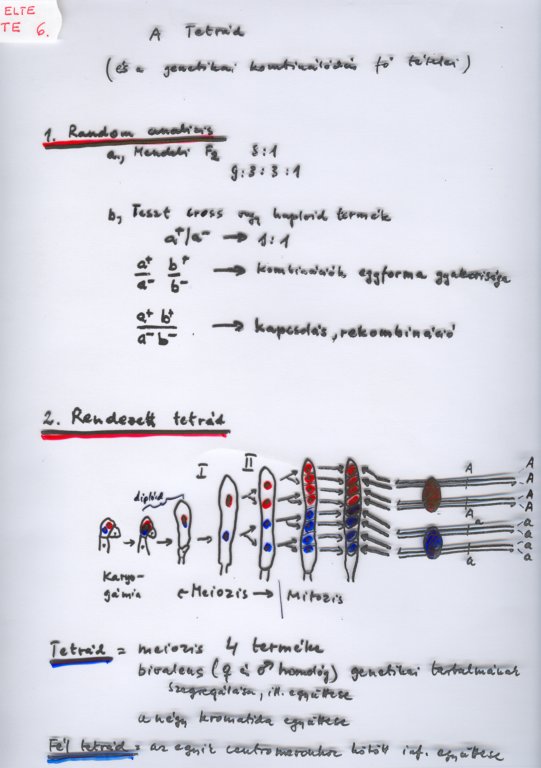 ELTE
TE 6.
A Tetrád
(és a genetikai kombinálódás fő tételei)
1. Random analízis
a., Mendeli F2 3:1
9:3:3:1
b, Teszt cross vagy haploid termék
a+/a- → 1:1
a+ b+
a- b- → kombinációk egyforma gyakorisága
a+ b+
a- b- → kapcsolás, rekombináció
2. Rendezett tetrád
I II
diploid
A A
A
A
A A
a a
a
a
a a
Karyo-
gámia
← Meiozis → Mitózis
Tetrád = meiozis 4 terméke
bivalens (♀ és ♂ homológ) genetikai tartalmának
szegregálása, ill. együttese
a négy kromatida együttese
Fél tetrád = az egyik centromerához kötött inf. együttese